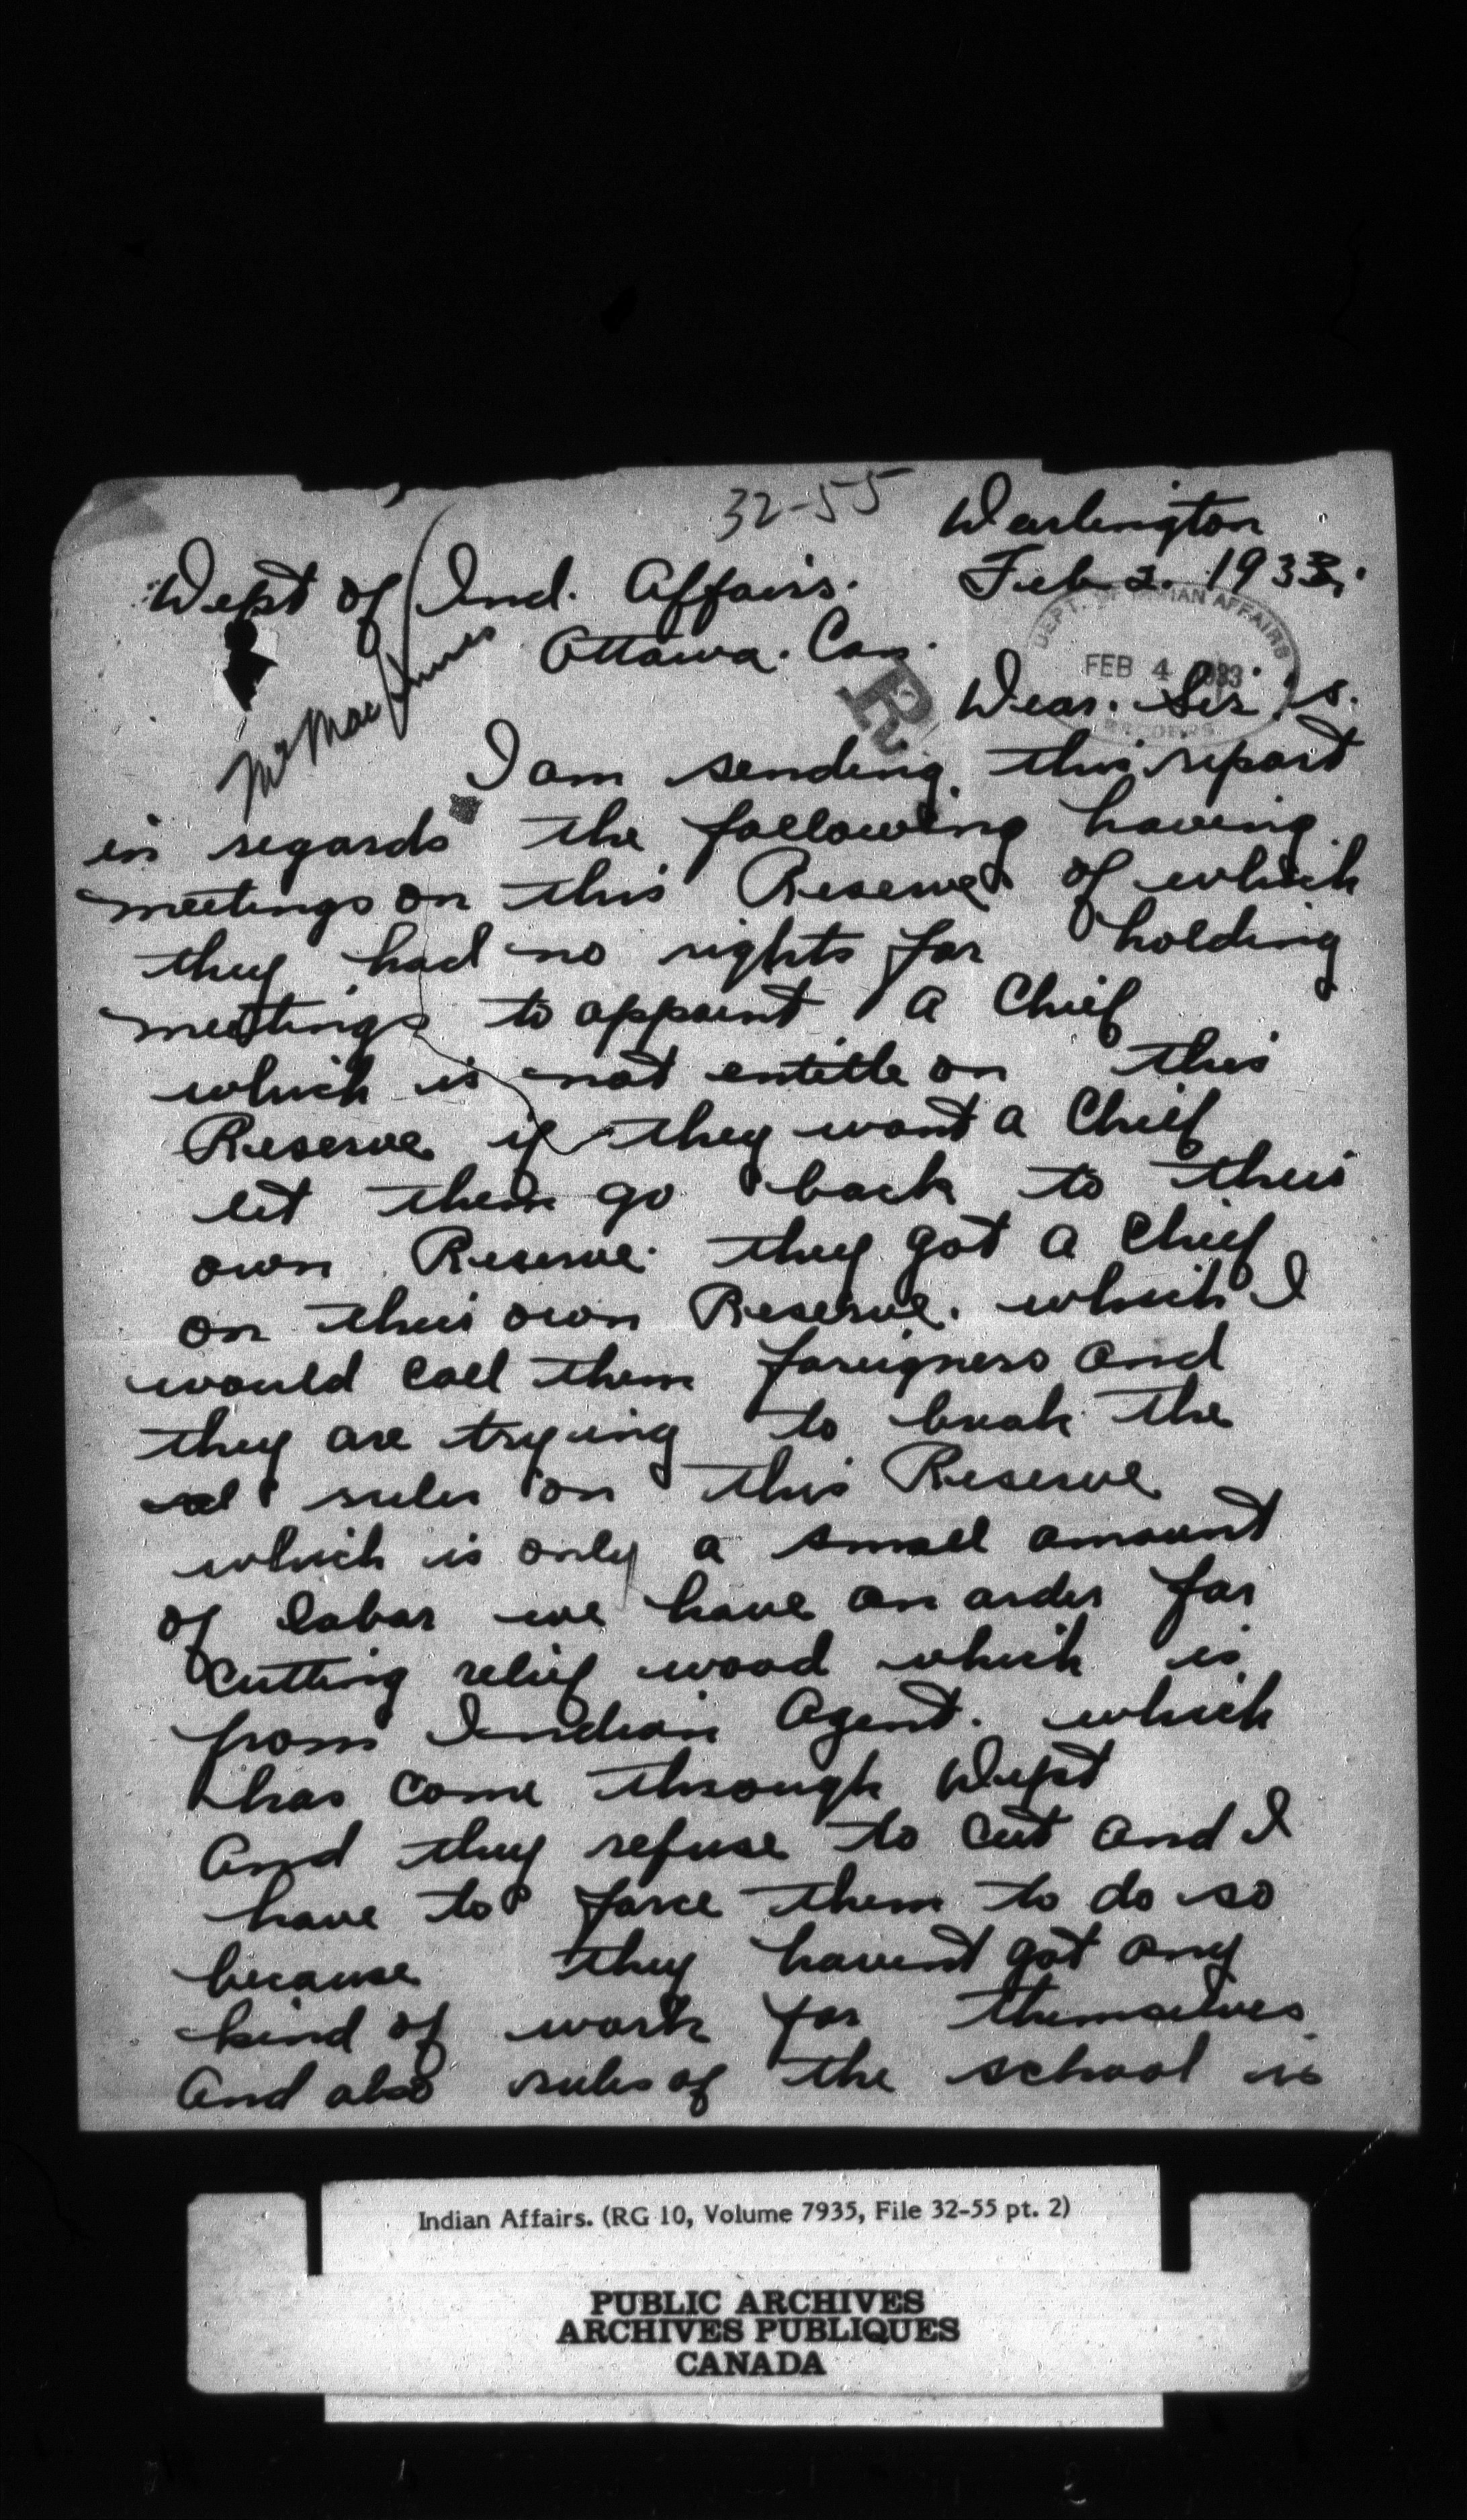 32-55
Darlington
Dept of Ind. Affairs. Feb 2. 1933.
Ottawa. Can.
DEPT. OF INDIAN AFFAIRS
FEB 4 1933
RECORDS
R
Mr MacInnes
Dear. Sir. s.
I am sending this report
in regards the following having
meetings on this Reserve of which
they had no rights for holding
meetings to appoint a Chief
which is not entitle on this
Reserve if they want a Chief
let them go back to their
own Reserve they got a Chief
on their own Reserve. which I
would call them foreigners and
they are trying to break the
rules on this Reserve
which is only a small amount
of labor we have an order for
cutting relief wood which is
from Indian Agent. which
has come through Dept
and they refuse to cut and I
have to force them to do so
because they havent got any
kind of work for themselves
and also rules of the school is
Indian Affairs. (RG 10, Volume 7935, File 32-55 pt. 2)
PUBLIC ARCHIVES
ARCHIVES PUBLIQUES
CANADA